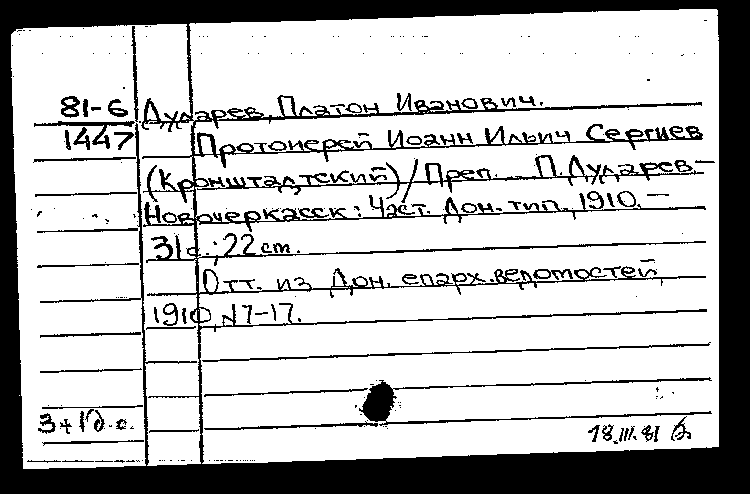 81-6 Дударев, Платон Иванович.
1447 Протоиерей Иоанн Ильич Сергиев
(Кронштадтский) / Преп. П. Дударев. —
Новочеркасск: Част. Дон. тип., 1910. —
31 с.; 22 cm.
Отт. из Дон. епарх. ведомостей,
1910, N 7-17.
3+1д.с.
18.III.81